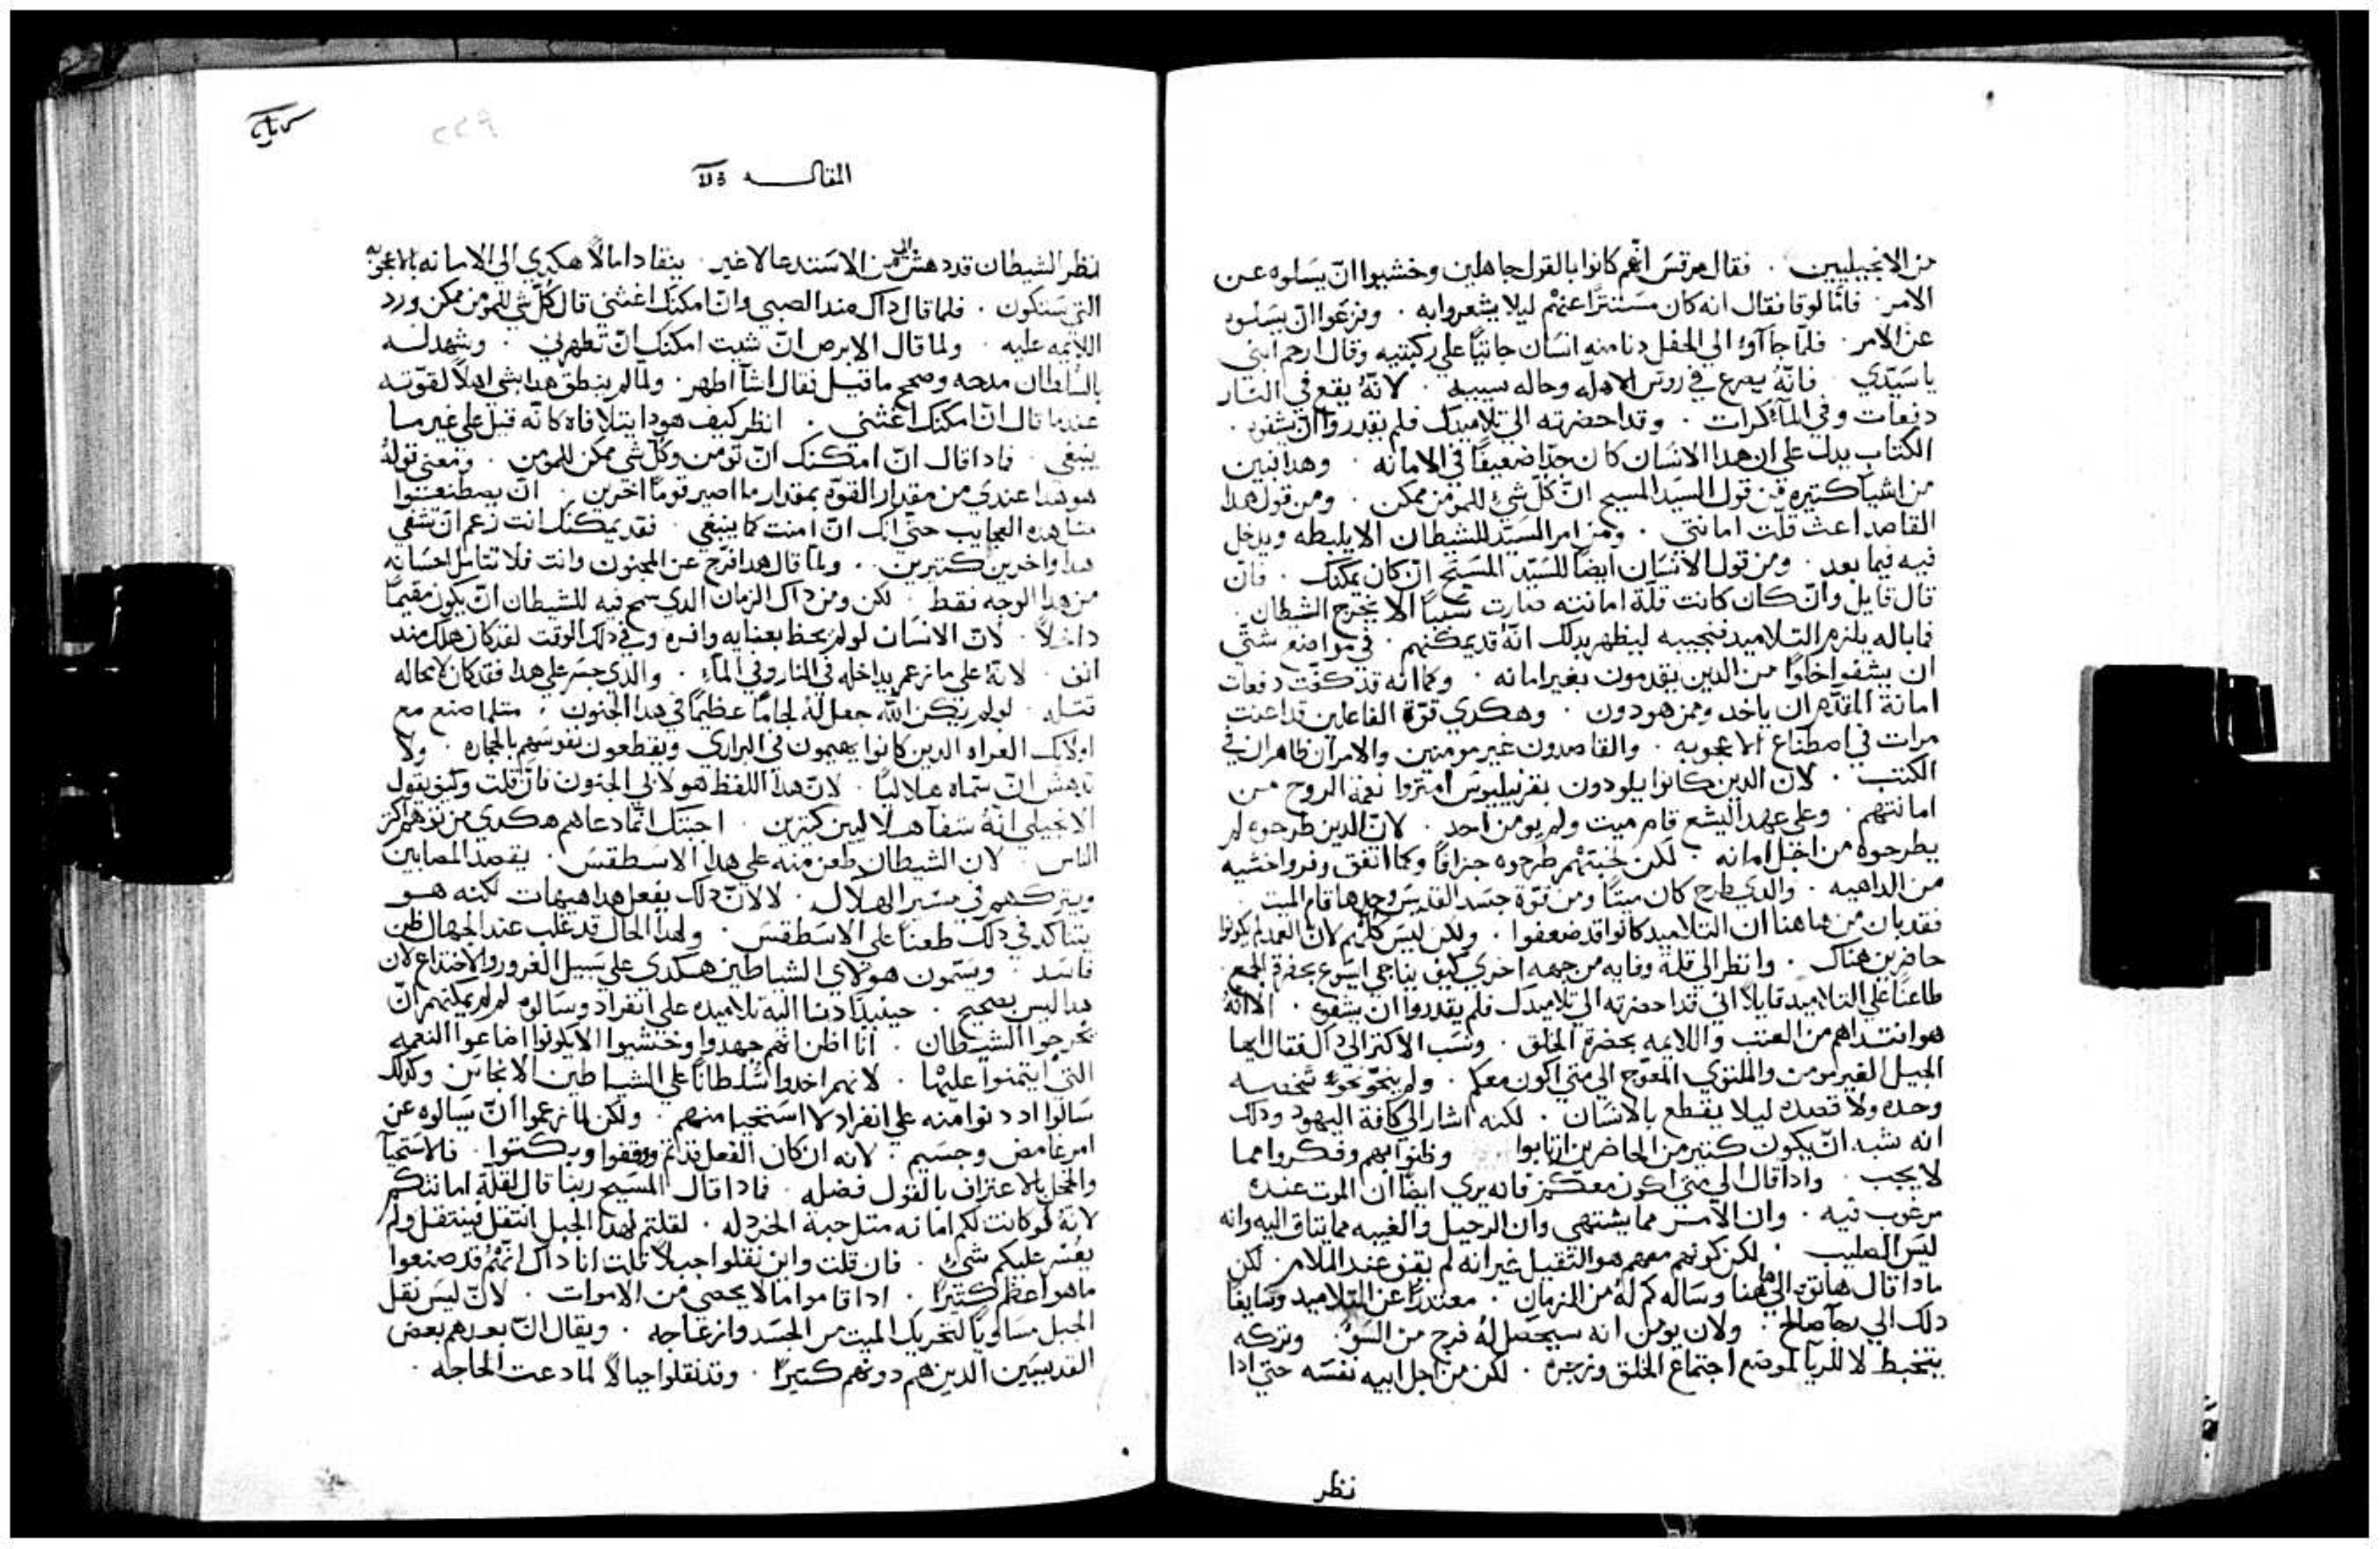 من الانجيليين . فقال مرقس انهم كانوا بالقول جاهلين وخشيوا ان يسلوه عن
الامر . فاما لوقا فقال انه كان مستترا عنهم ليلا يشعروا به . وفزعوا ان يسلوه
عن الامر . فلما جاآوا الي الحفل دنا منه انسان جاثيا علي ركبتيه وقال ارحم ابني
يا سيدي فانه يصرع في روس الاهله وحاله سييه . لانه يقع في النار
دفعات وفي المآء كرات . وقد احضرته الي تلاميدك فلم يقدروا ان يشفوه .
الكتاب يدل علي ان هدا الانسان كان جدا ضعيفا في الامانه . وهدا تبين
من اشيا كتيره فمن قول السيد المسيح ان كل شيء للمومن ممكن . ومن قول هدا
القاصد اعث قلت امانتي . ومن امر السيد للشيطان الا يلبطه ويدخل
فيه فيما بعد . ومن قول الانسان ايضا للسيد المسيح ان كان يمكنك . فان
قال قايل وان كان كانت قلة امانته صارت سببا الا يخرج الشيطان .
فما باله يلزم التلاميد فنجيبه ليظهر بدلك انه قد يمكنهم . في مواضع شتي
ان يشفوا خلوا من الدين يقدمون بغير امانه . وكما انه قد كفت دفعات
امانة المقدم ان ياخد وممن هو دون . وهكدي قوة الفاعلين قد اعنت
مرات في اصطناع الاعجوبه . والقاصدون غير مومنين والامران ظاهران في
الكتب . لان الدين كانوا يلودون بقرنيليوس امتروا نعمة الروح من
امانتهم . وعلي عهد اليشع قام ميت ولم يومن احد . لان الدين طرحوه لم
يطرحوه من اجل امانه . لكن لخيبتهم طرحوه جزافا وكما اتفق وفروا خشيه
من الداهيه . والدي طرح كان ميتا ومن قوة جسد القديس وحدها قام الميت
فقد بان من هاهنا ان التلاميد كانوا قد ضعفوا . ولكن ليس كلهم لان العمد لم يكونوا
حاضرين هناك . وانظر الي قلة وفايه من جهه اخري كيف يناجي ايسوع بحضرة الجمع
طاعنا علي التلاميد قايلا اني قد احضرته الي تلاميدك فلم يقدروا ان يشفوه . الا انه
هو انتداهم من العتب واللايمه بحضرة الخلق . ونسب الاكتر الي داك فقال ايها
الجيل الغير مومن والملتوي المعوج الي متي اكون معكم . ولم ينحو نحوه شخصه
وحده ولا قصده ليلا يقطع بالانسان . لكنه اشار الي كافة اليهود ودلك
انه شبه ان يكون كتير من الحاضرين ارتابوا وظنوا بهم وفكروا مما
لا يجب . وادا قال الي متي اكون معكم فانه يري ايضا ان الموت عنده
مرغوب فيه . وان الامر مما يشتهي وان الرحيل والغيبه مما يتاق اليه وانه
ليس الصليب . لكن كونهم معهم هو الثقيل غير انه لم يقف عند الملام . لكن
مادا قال هاتوه الي هاهنا وساله كم له من الزمان . معتدرا عن التلاميد وسايقا
دلك الي رجآ صالح . ولان يومن انه سيحصل له فرج من السو . وتركه
يتخبط لا للريآ لموضع اجتماع الخلق وزجره . لكن من اجل ابيه نفسه حتي ادا
نظر
المقالـــه
نظر الشيطان قد دهش الي من الاستدعا لا غير . ينقاد امالا هكدي الي الامانه بالاعجوبه
التي ستكون . فلما قال داك مند الصبي وان امكنك اغثني قال كل شي للمومن ممكن ورد
اللايمه عليه . ولما قال الابرص ان شيت امكنك ان تطهرني . وشهد له
بالسلطان مدحه وصحح ما قيل فقال اشآ اطهر . ولما لم ينطق هدا بشي اهلا لقوته
عندما قال ان امكنك اغثني . انظر كيف هودا يتلافاه كانه قيل علي غير ما
ينبغي . فمادا قال ان امكنك ان تومن وكل شي ممكن للمومن . ومعني قوله
هو هدا عندي من مقدار القوه بمقدار ما اصير قوما اخرين . ان يصطنعوا
مثل هده العجايب حتي انك ان امنت كما ينبغي . فقد يمكنك انت زعم ان تشفي
هدا واخرين كتيرين . ولما قال هدا افرج عن المجنون وانت فلا تتامل احسانه
من هدا الوجه فقط . لكن ومن داك الزمان الدي سمح فيه للشيطان ان يكون مقيما
داخلا . لان الانسان لو لم يحظ بعنايه وافره وفي دلك الوقت لقد كان هلك مند
انف . لانه علي ما زعم يداخله في النار وفي المآء . والدي جسر علي هدا فقد كان لا محاله
قتله . لو لم يكن الله جعل له لجاما عظيما في هدا الجنون . متلما صنع مع
اولايك العراه الدين كانوا يهيمون في البراري ويقطعون نفوسهم بالحجاره . ولا
تدهش ان سماه هلاليا . لان هدا اللفظ هو لابي المجنون فان قلت وكيف يقول
الانجيلي انه شفآ هلاليين كتيرين . اجبتك انما دعاهم هكدي من توهم اكتر
الناس . لان الشيطان طعن منه علي هدا الاسطقس . يقصد المصابين
ويتركهم في مسير الهلال . لا لان دلك يفعل هدا هيهات لكنه هو
يتنا كد في دلك طعنا علي الاسطقس . ولهدا الحال قد غلب عند الجهال ظن
فاسد . ويسمون هولاي الشياطين هكدي علي سبيل الغرور والاختداع لان
هدا ليس بصحيح . حينيد دنا اليه تلاميده علي انفراد وسالوه لم لم يمكنهم ان
يخرجوا الشيطان . انا اظن انهم جهدوا وخشيوا الا يكونوا اضاعوا النعمه
التي ايتمنوا عليها . لانهم اخدوا سلطانا علي الشياطين الانجاس وكدلك
سالوا اد دنوا منه علي انفراد لا استحيا منهم . ولكن لما زعموا ان سالوه عن
امر غامض وجسيم . لانه ان كان الفعل قد تم ووقفوا وبكتوا . فالاستحيآ
والخجل بالاعتراف بالقول فضله . فمادا قال المسيح ربنا قال لقلة امانتكم
لانه لو كانت لكم امانه متل حبة الخردله . لقلتم لهدا الجبل انتقل فينتقل ولم
يعسر عليكم شيء . فان قلت واين نقلوا جبلا قلت انا داك انهم قد صنعوا
ما هو اعظم كتيرا . ادا قاموا ما لا يحصي من الاموات . لان ليس نقل
الجبل مساويا لتحريك الميت من الجسد وازعاجه . ويقال ان بعدهم بعض
القديسيين الدين هم دونهم كتيرا . وقد نقلوا جبالا لما دعت الحاجه .